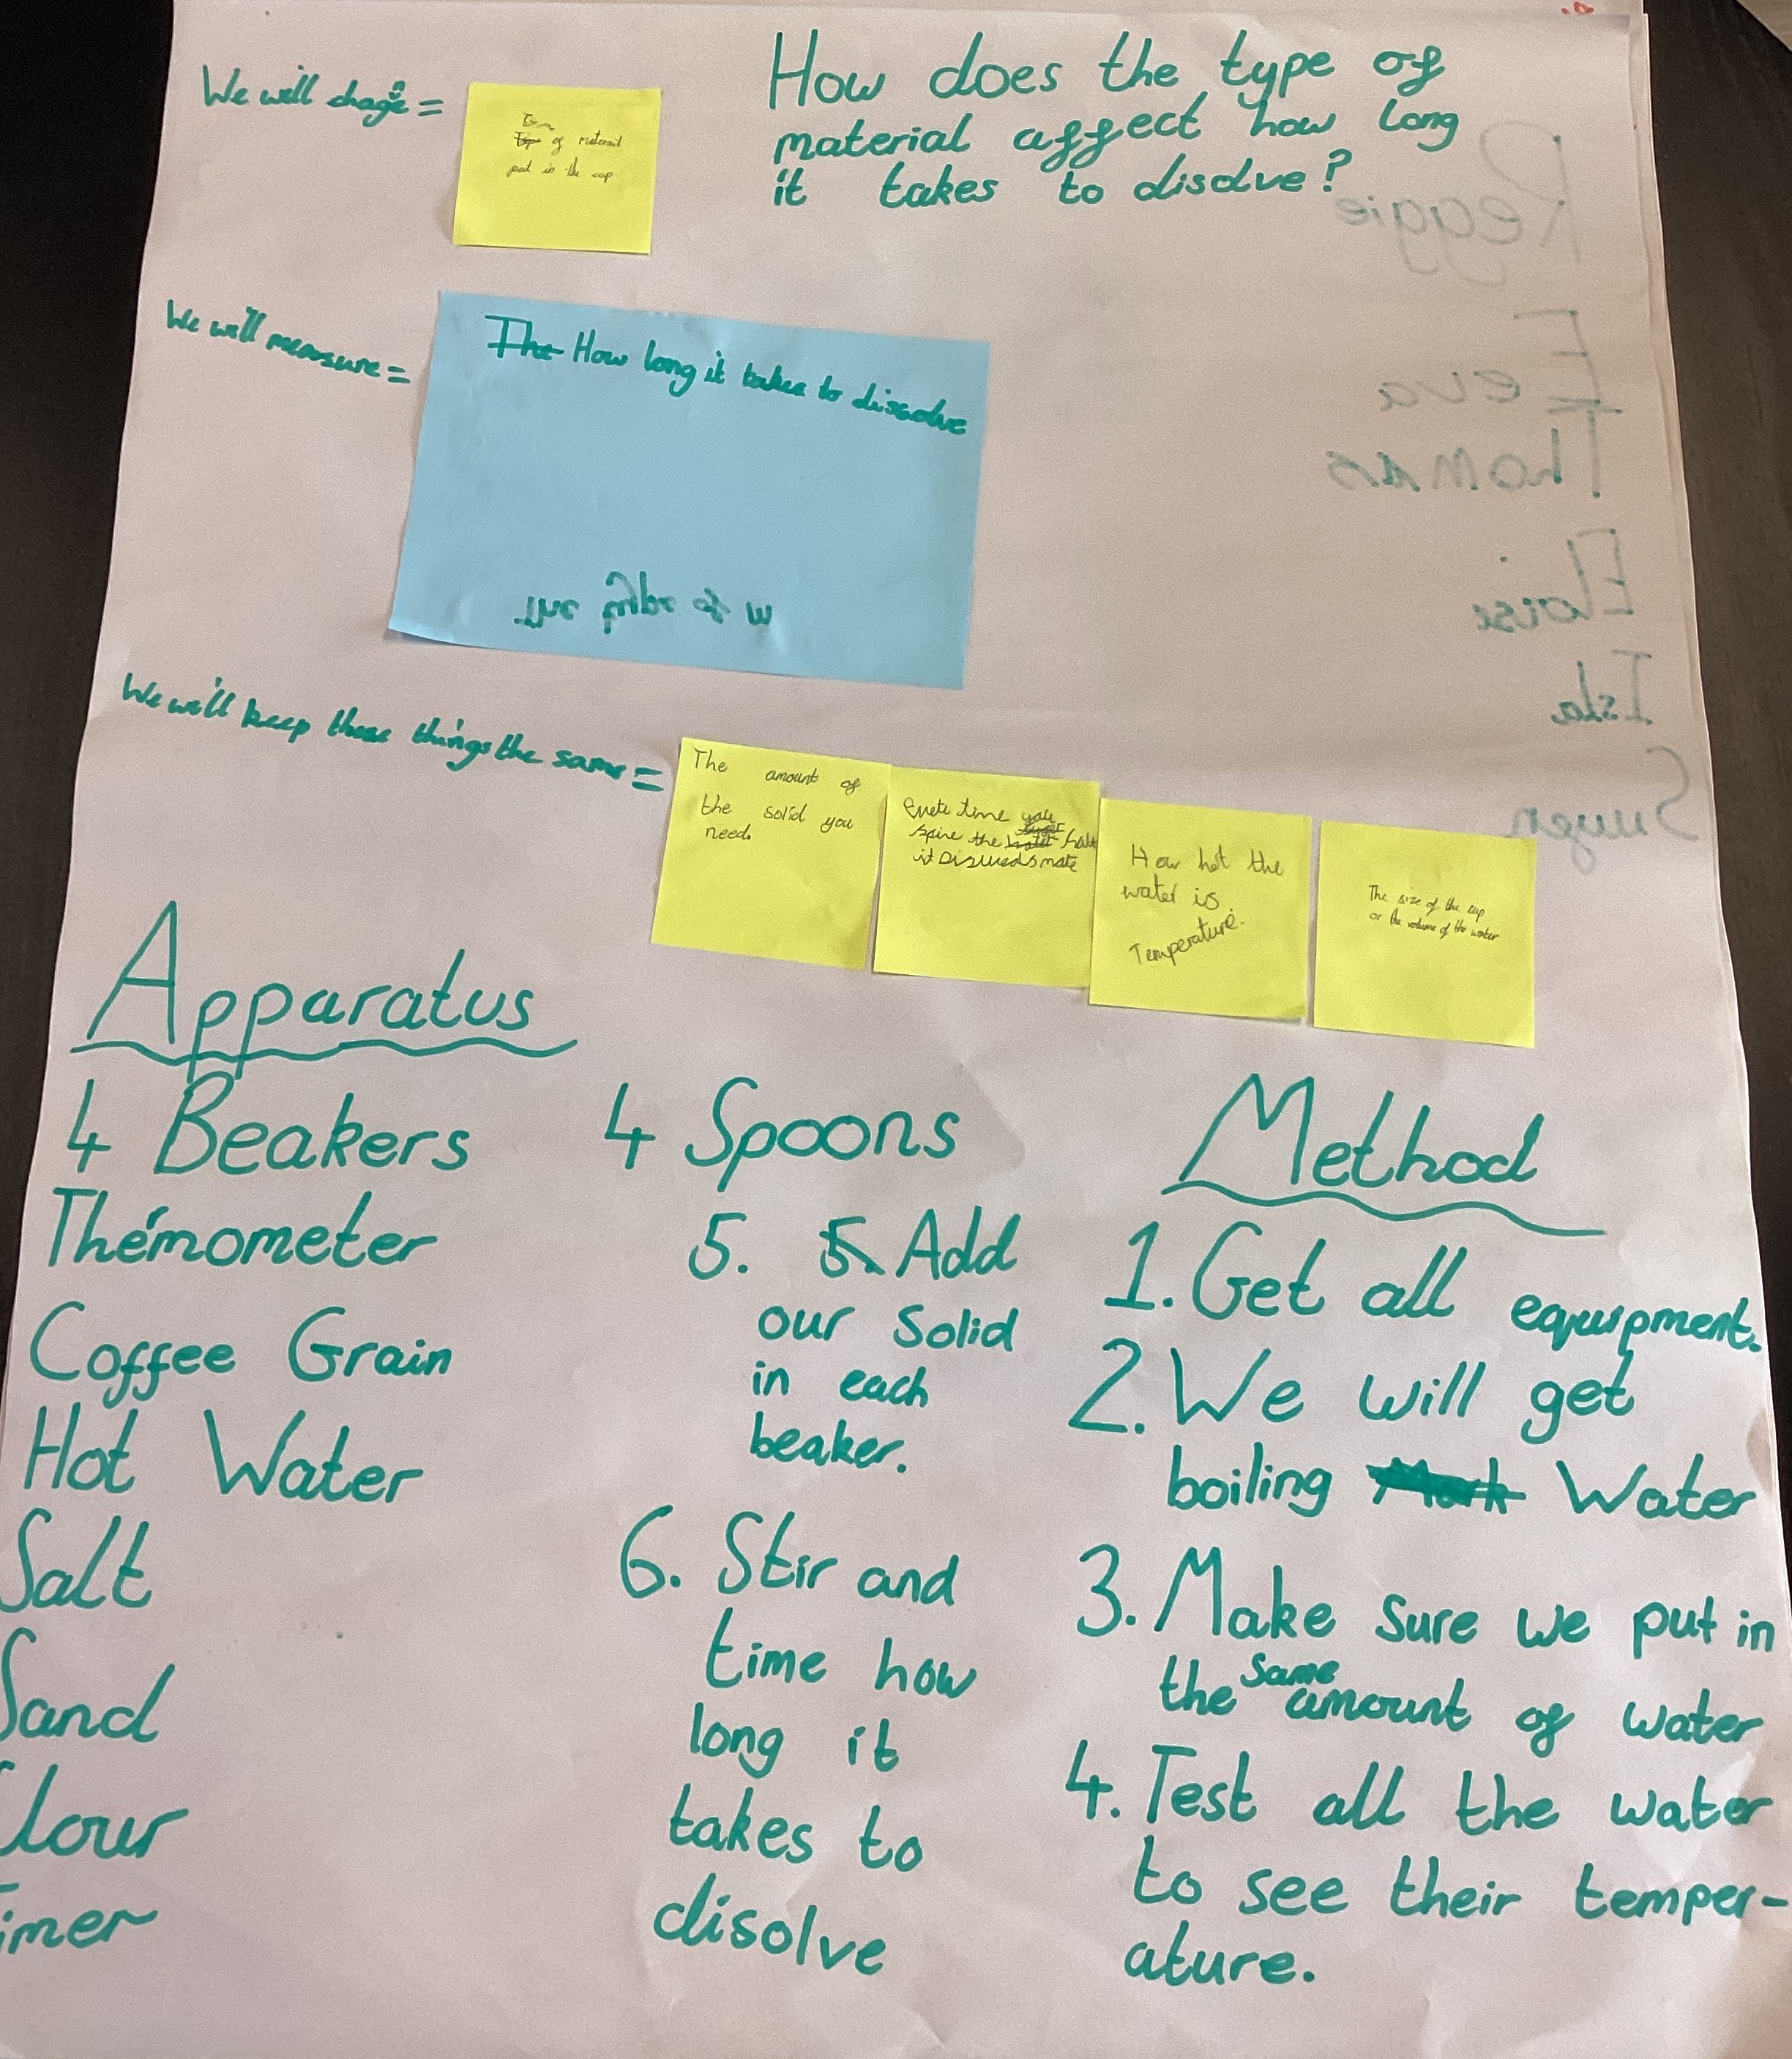 How does the type of
material affect how long
it takes to disolve?
We will chage =
of material
put in the cup.
We will measure =
The How long it takes to dissolve
We will keep these things the same =
The amount of
the solid you
need.
time you
the
it
How hot the
water is.
Temperature.
The size of the cup
or the volume of the water
Apparatus
4 Beakers
Thermometer
Coffee Grain
Hot Water
Salt
Sand
lour
imer
4 Spoons
Method
1. Get all equipment.
2. We will get
boiling Water
3. Make sure we put in
the same amount of water
4. Test all the water
to see their temper-
ature.
5. 5. Add
our solid
in each
beaker.
6. Stir and
time how
long it
takes to
disolve
Reggie
Eva
Thomas
Eloise
Isla